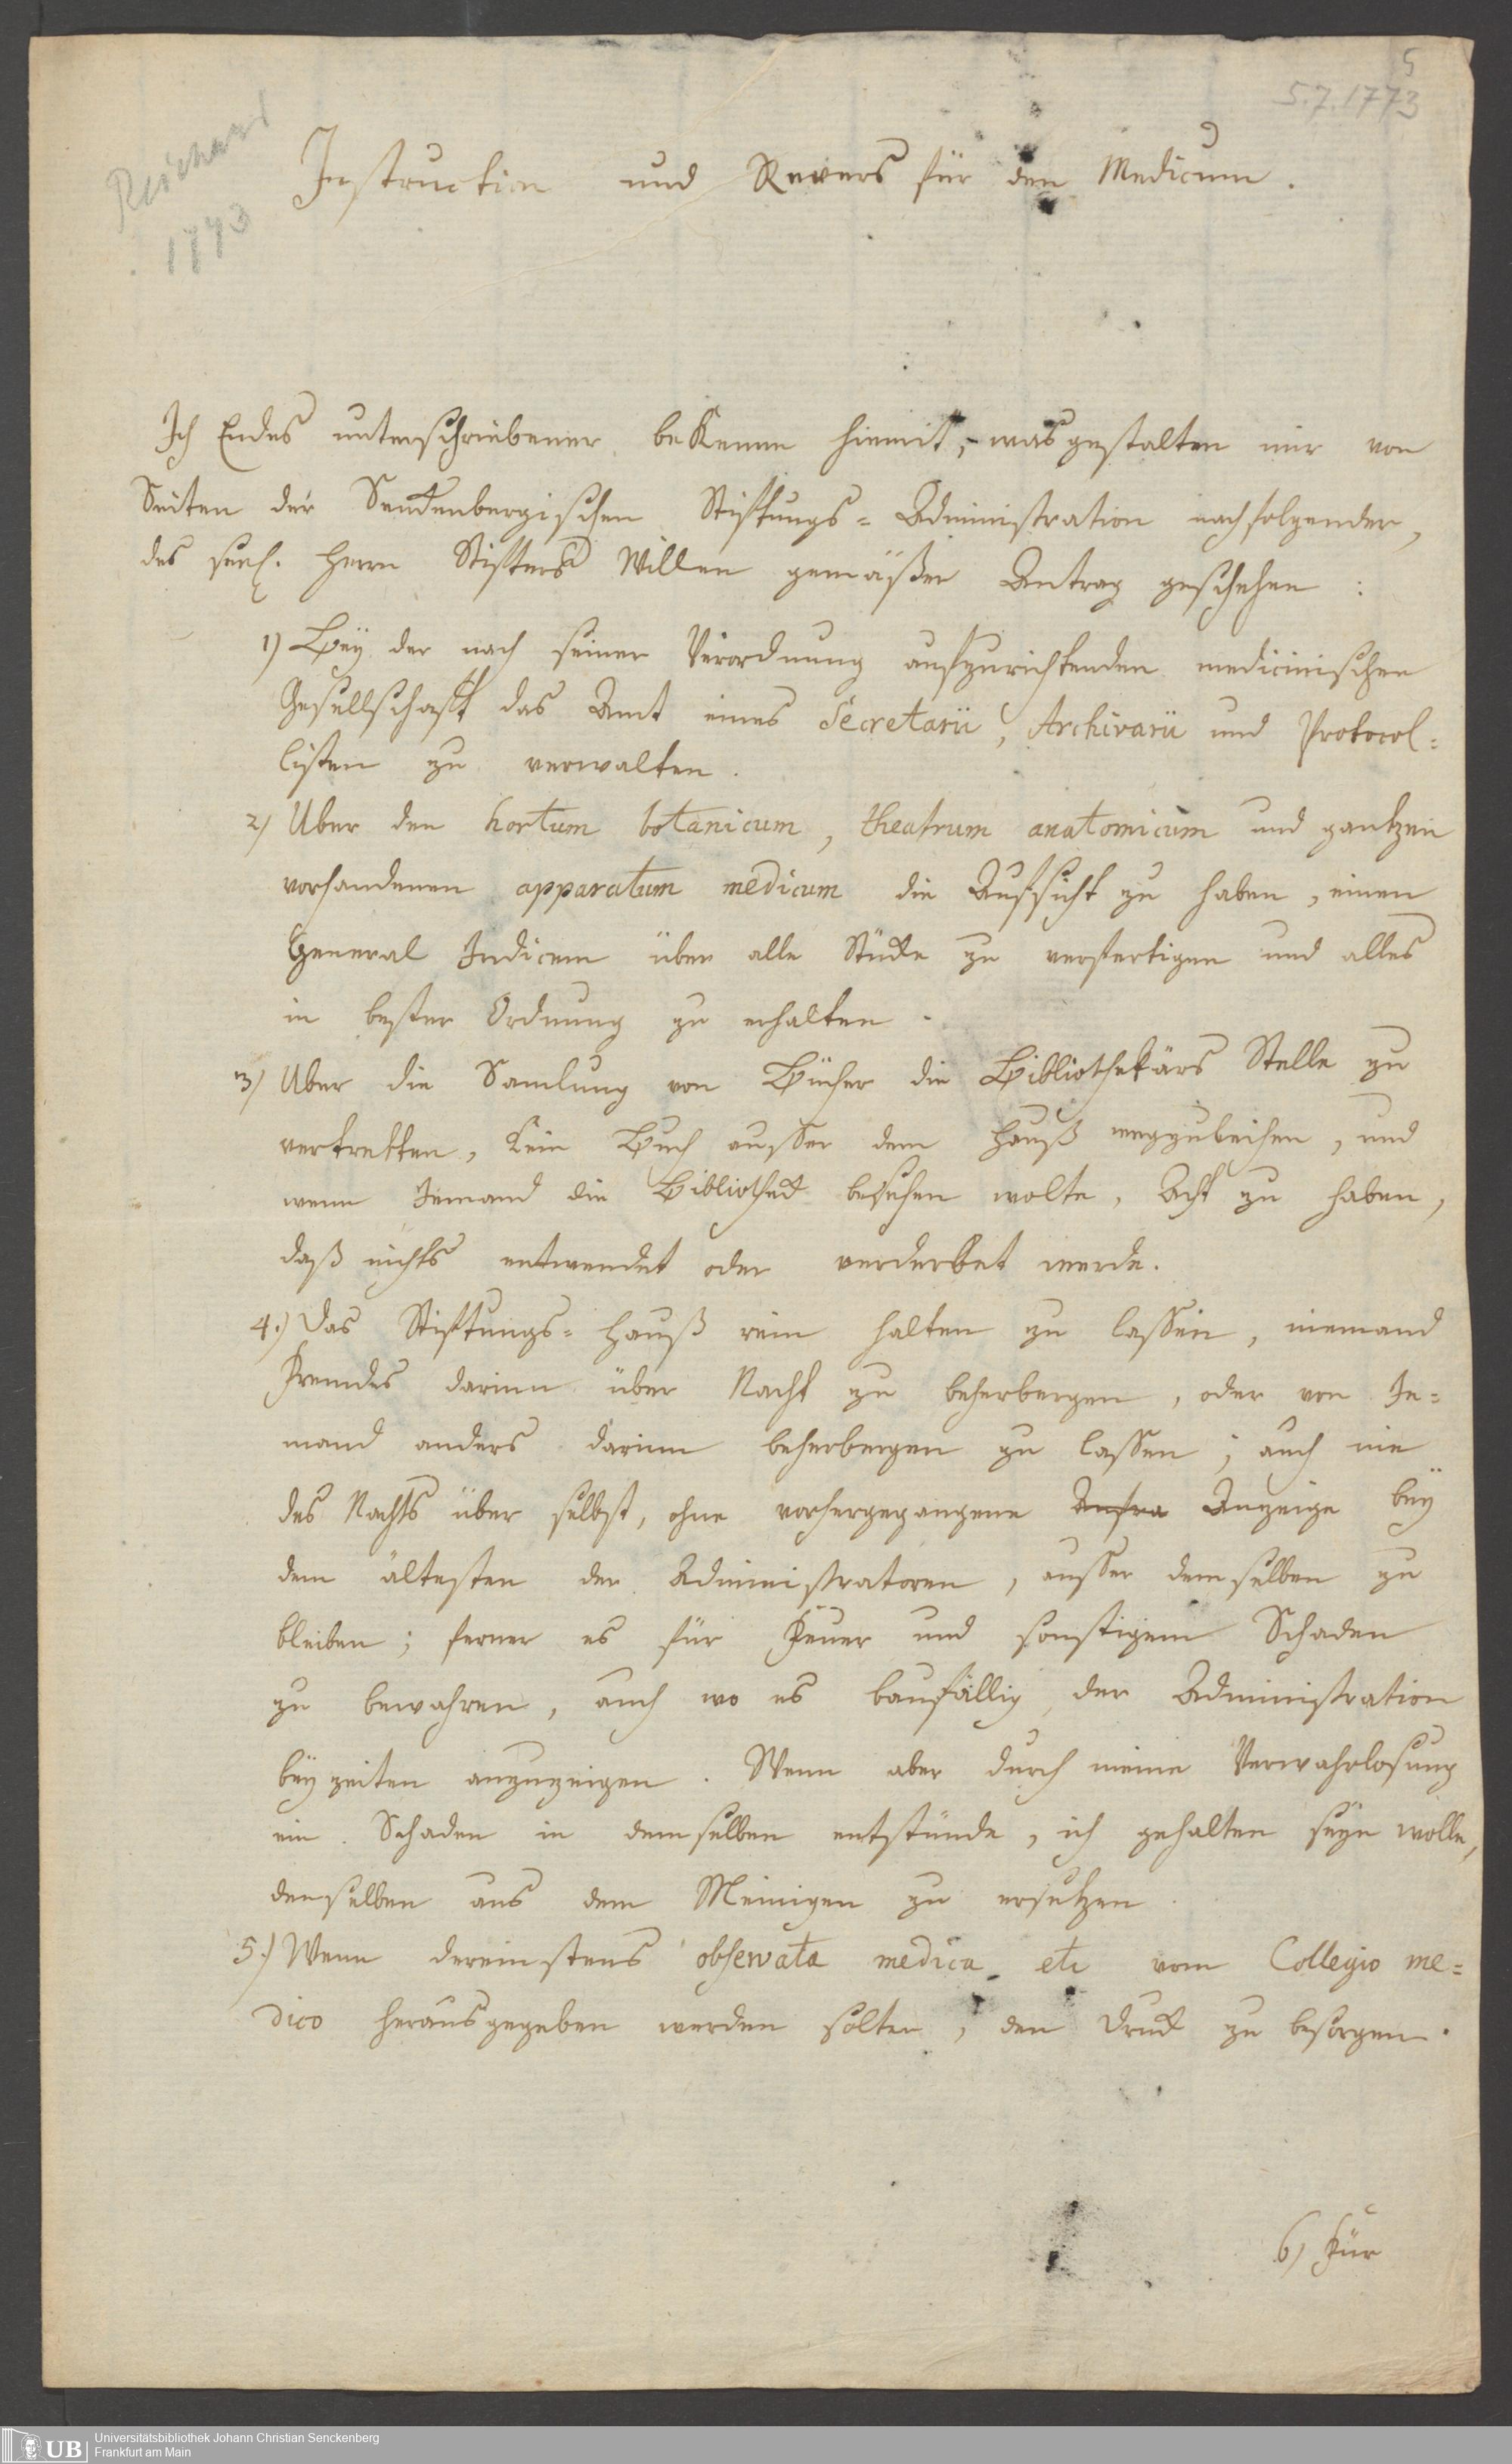 5
5.7.1773
Reichard
1773
Instruction und Revers für den Medicum.
Ich Endes unterschriebener bekenne hiemit, was gestalten mir von
Seiten der Senckenbergischen Stiftungs-Administration nachfolgender,
des seel. Herrn Stifters Willen gemäßer Antrag geschehen:
1) Bey der nach seiner Verordnung aufzurichtenden medicinischen
Gesellschafft das Amt eines Secretarii, Archivarii und Protocol-
listen zu verwalten.
2) Uber den hortum botanicum, theatrum anatomicum und gantzen
vorhandenen apparatum medicum die Aufsicht zu haben, einen
General Indicem über alle Stücke zu verfertigen und alles
in bester Ordnung zu erhalten.
3) Uber die Samlung von Bücher die Bibliothekärs Stelle zu
vertretten, kein Buch ausser dem Hauß wegzuleihen, und
wenn Jemand die Bibliotheck besehen wolte, Acht zu haben,
daß nichts entwendet oder verderbet werde.
4.) Das Stiftungs-Hauß rein halten zu lassen, niemand
Fremdes darinn über Nacht zu beherbergen, oder von Je-
mand anders darinn beherbergen zu lassen; auch nie
des Nachts über selbst, ohne vorhergegangene Anfra Anzeige bey
dem ältesten der Administratoren, ausser demselben zu
bleiben; ferner es für Feuer und sonstigem Schaden
zu bewahren, auch wo es baufällig, der Administration
bey zeiten anzuzeigen. Wenn aber durch meine Verwahrlosung
ein Schaden in demselben entstünde, ich gehalten seyn wolle,
denselben aus dem Meinigen zu ersetzen.
5.) Wenn dereinstens observata medica etc vom Collegio me-
dico herausgegeben werden solten, den Druck zu besorgen.
6) Für
UB
Universitätsbibliothek Johann Christian Senckenberg
Frankfurt am Main